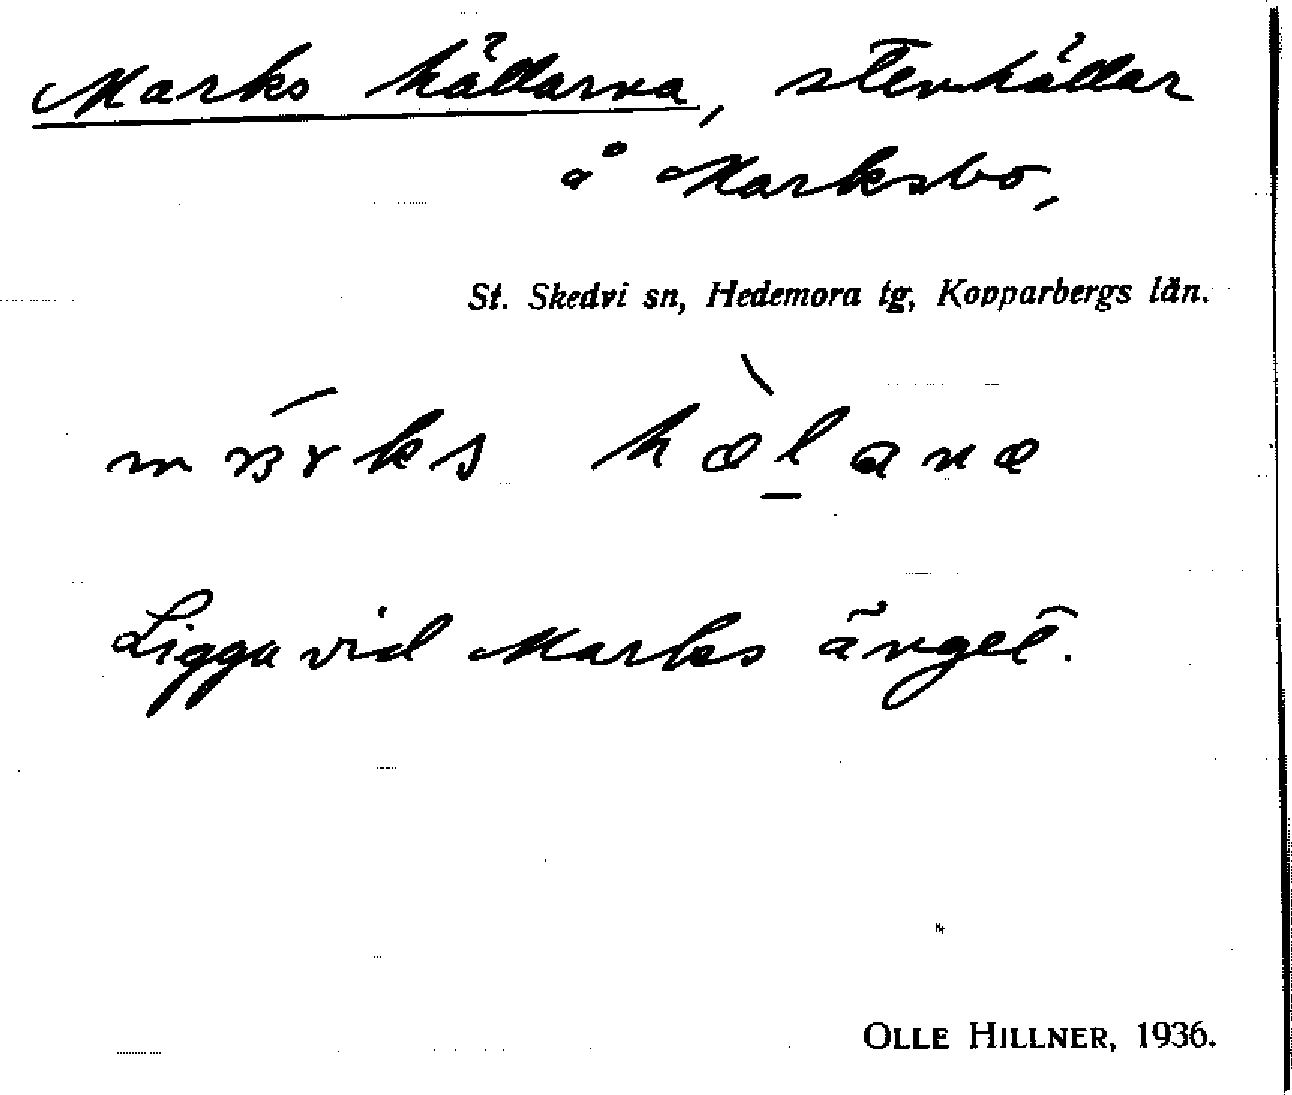 Marks hällarna, stenhällar
å Marksbo,
St. Skedvi sn, Hedemora tg, Kopparbergs län.
Ligga vid Marks änget.
OLLE HILLNER, 1936.